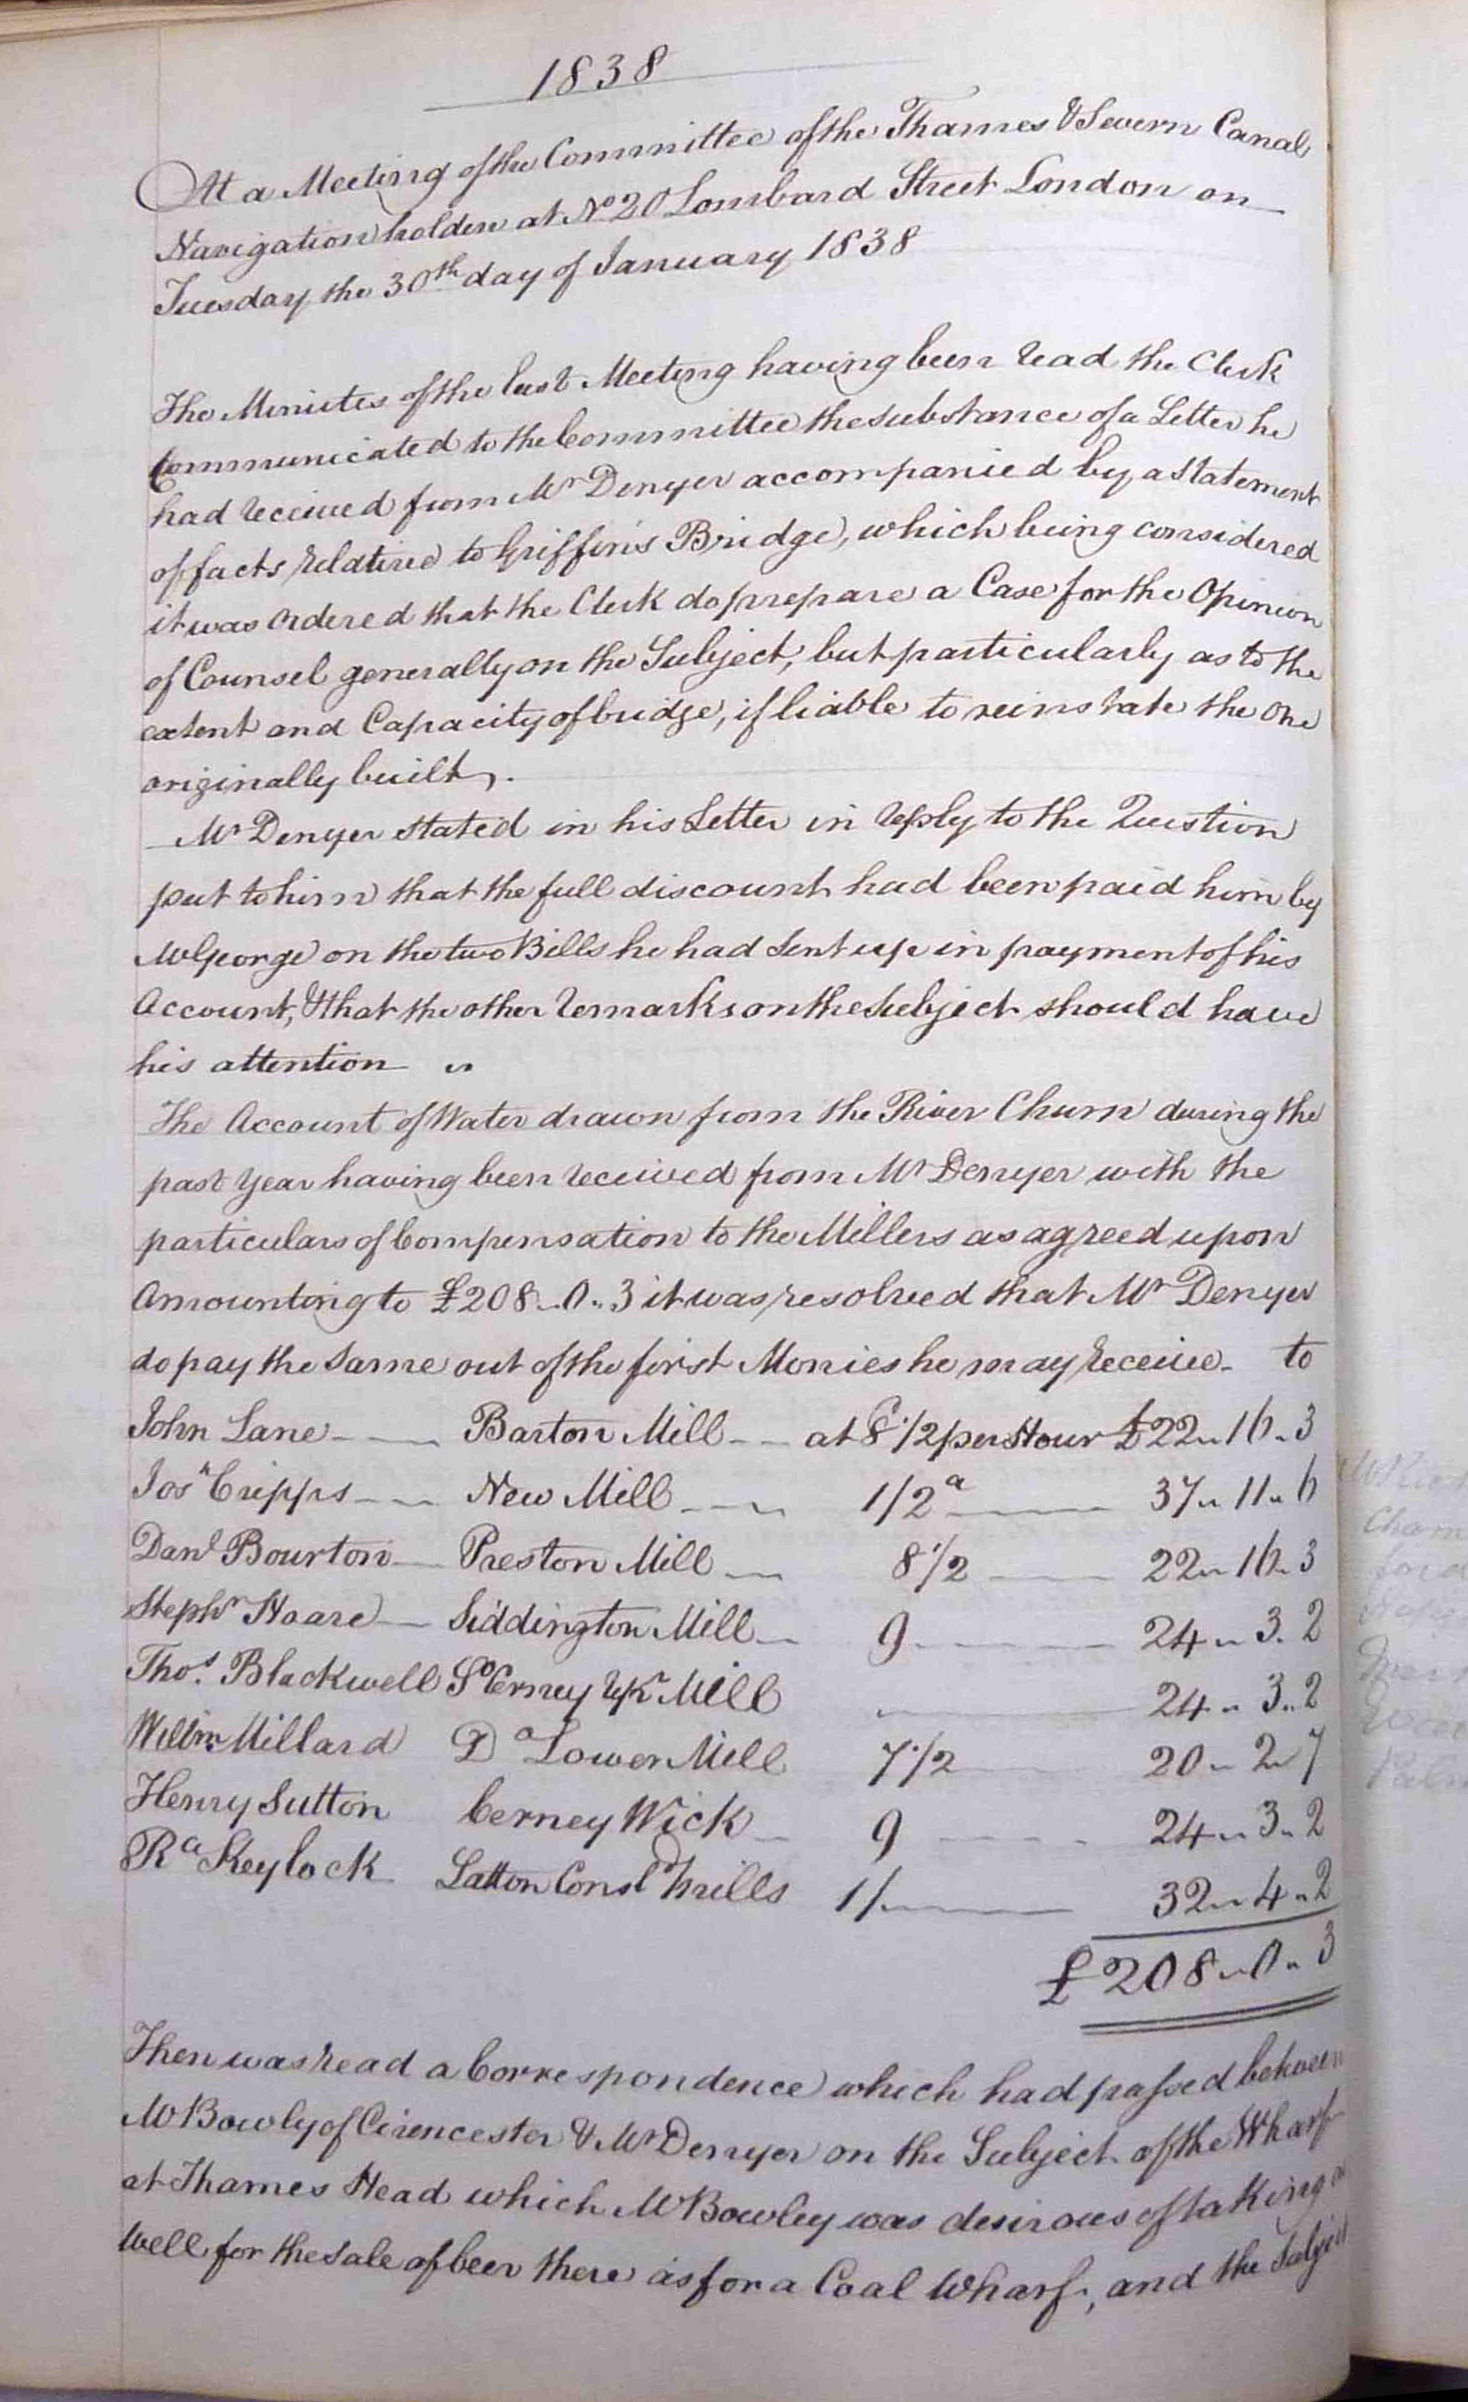 1838
At a Meeting of the Committee of the Thames & Severn Canal
Navigation holden at No 20 Lombard Street London on
Tuesday the 30th day of January 1838
The Minutes of the last Meeting having been read the Clerk
Communicated to the Committee the substance of a Letter he
had received from Mr Denyer accompanied by a statement
of facts relative to Griffin's Bridge, which being considered
it was ordered that the Clerk do prepare a Case for the Opinion
of Counsel generally on the Subject, but particularly as to the
extent and Capacity of bridge, if liable to reinstate the one
originally built.
Mr Denyer stated in his Letter in reply to the Question
put to him that the full discount had been paid him by
Mr George on the two Bills he had sent up in payment of his
Account, & that the other remarks on the subject should have
his attention
The Account of Water drawn from the River Churn during the
past year having been received from Mr Denyer with the
particulars of Compensation to the Millers as agreed upon
Amounting to £208 " 0 " 3 it was resolved that Mr Denyer
do pay the same out of the first Monies he may receive - to
John Lane Barton Mill at 8 1/2 per Hour £22 " 16 " 3
Josh Cripps New Mill 1/2d 37 " 11 " 6
Danl Bourton Preston Mill 8 1/2 22 " 16 " 3
Stephn Hoare Siddington Mill 9 24 " 3 " 2
Thos. Blackwell So Cerney Upr Mill 24 " 3 " 2
Willm Millard Do Lower Mill 7 1/2 20 " 2 " 7
Henry Sutton Cerney Wick 9 24 " 3 " 2
Rd Keylock Latton Consl Mills 1/ 32 " 4 " 2
£208 " 0 " 3
Then was read a Correspondence which had passed between
Mr Bowly of Cirencester & Mr Denyer on the Subject of the Wharf
at Thames Head which Mr Bowley was desirous of taking as
well for the sale of beer there as for a Coal Wharf, and the Subject